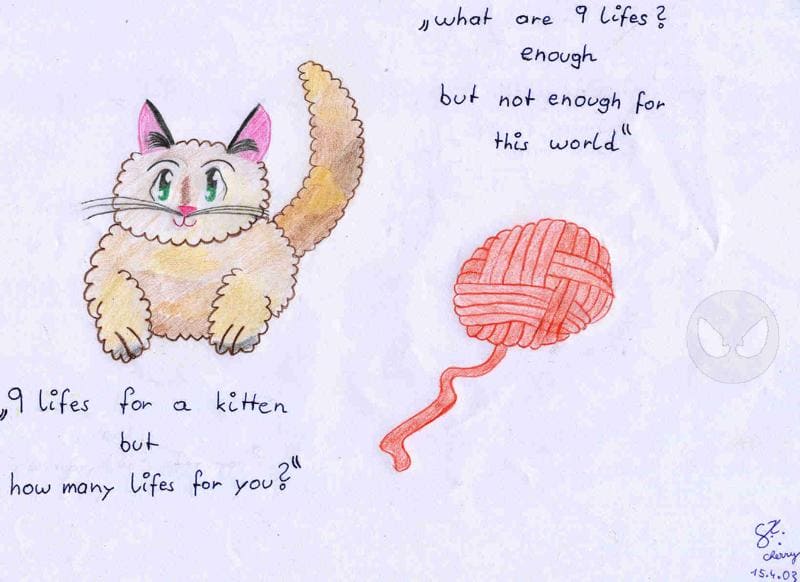 „what are 9 lifes?
enough
but not enough for
this world“
„9 lifes for a kitten
but
how many lifes for you?“
cherry
15.4.03